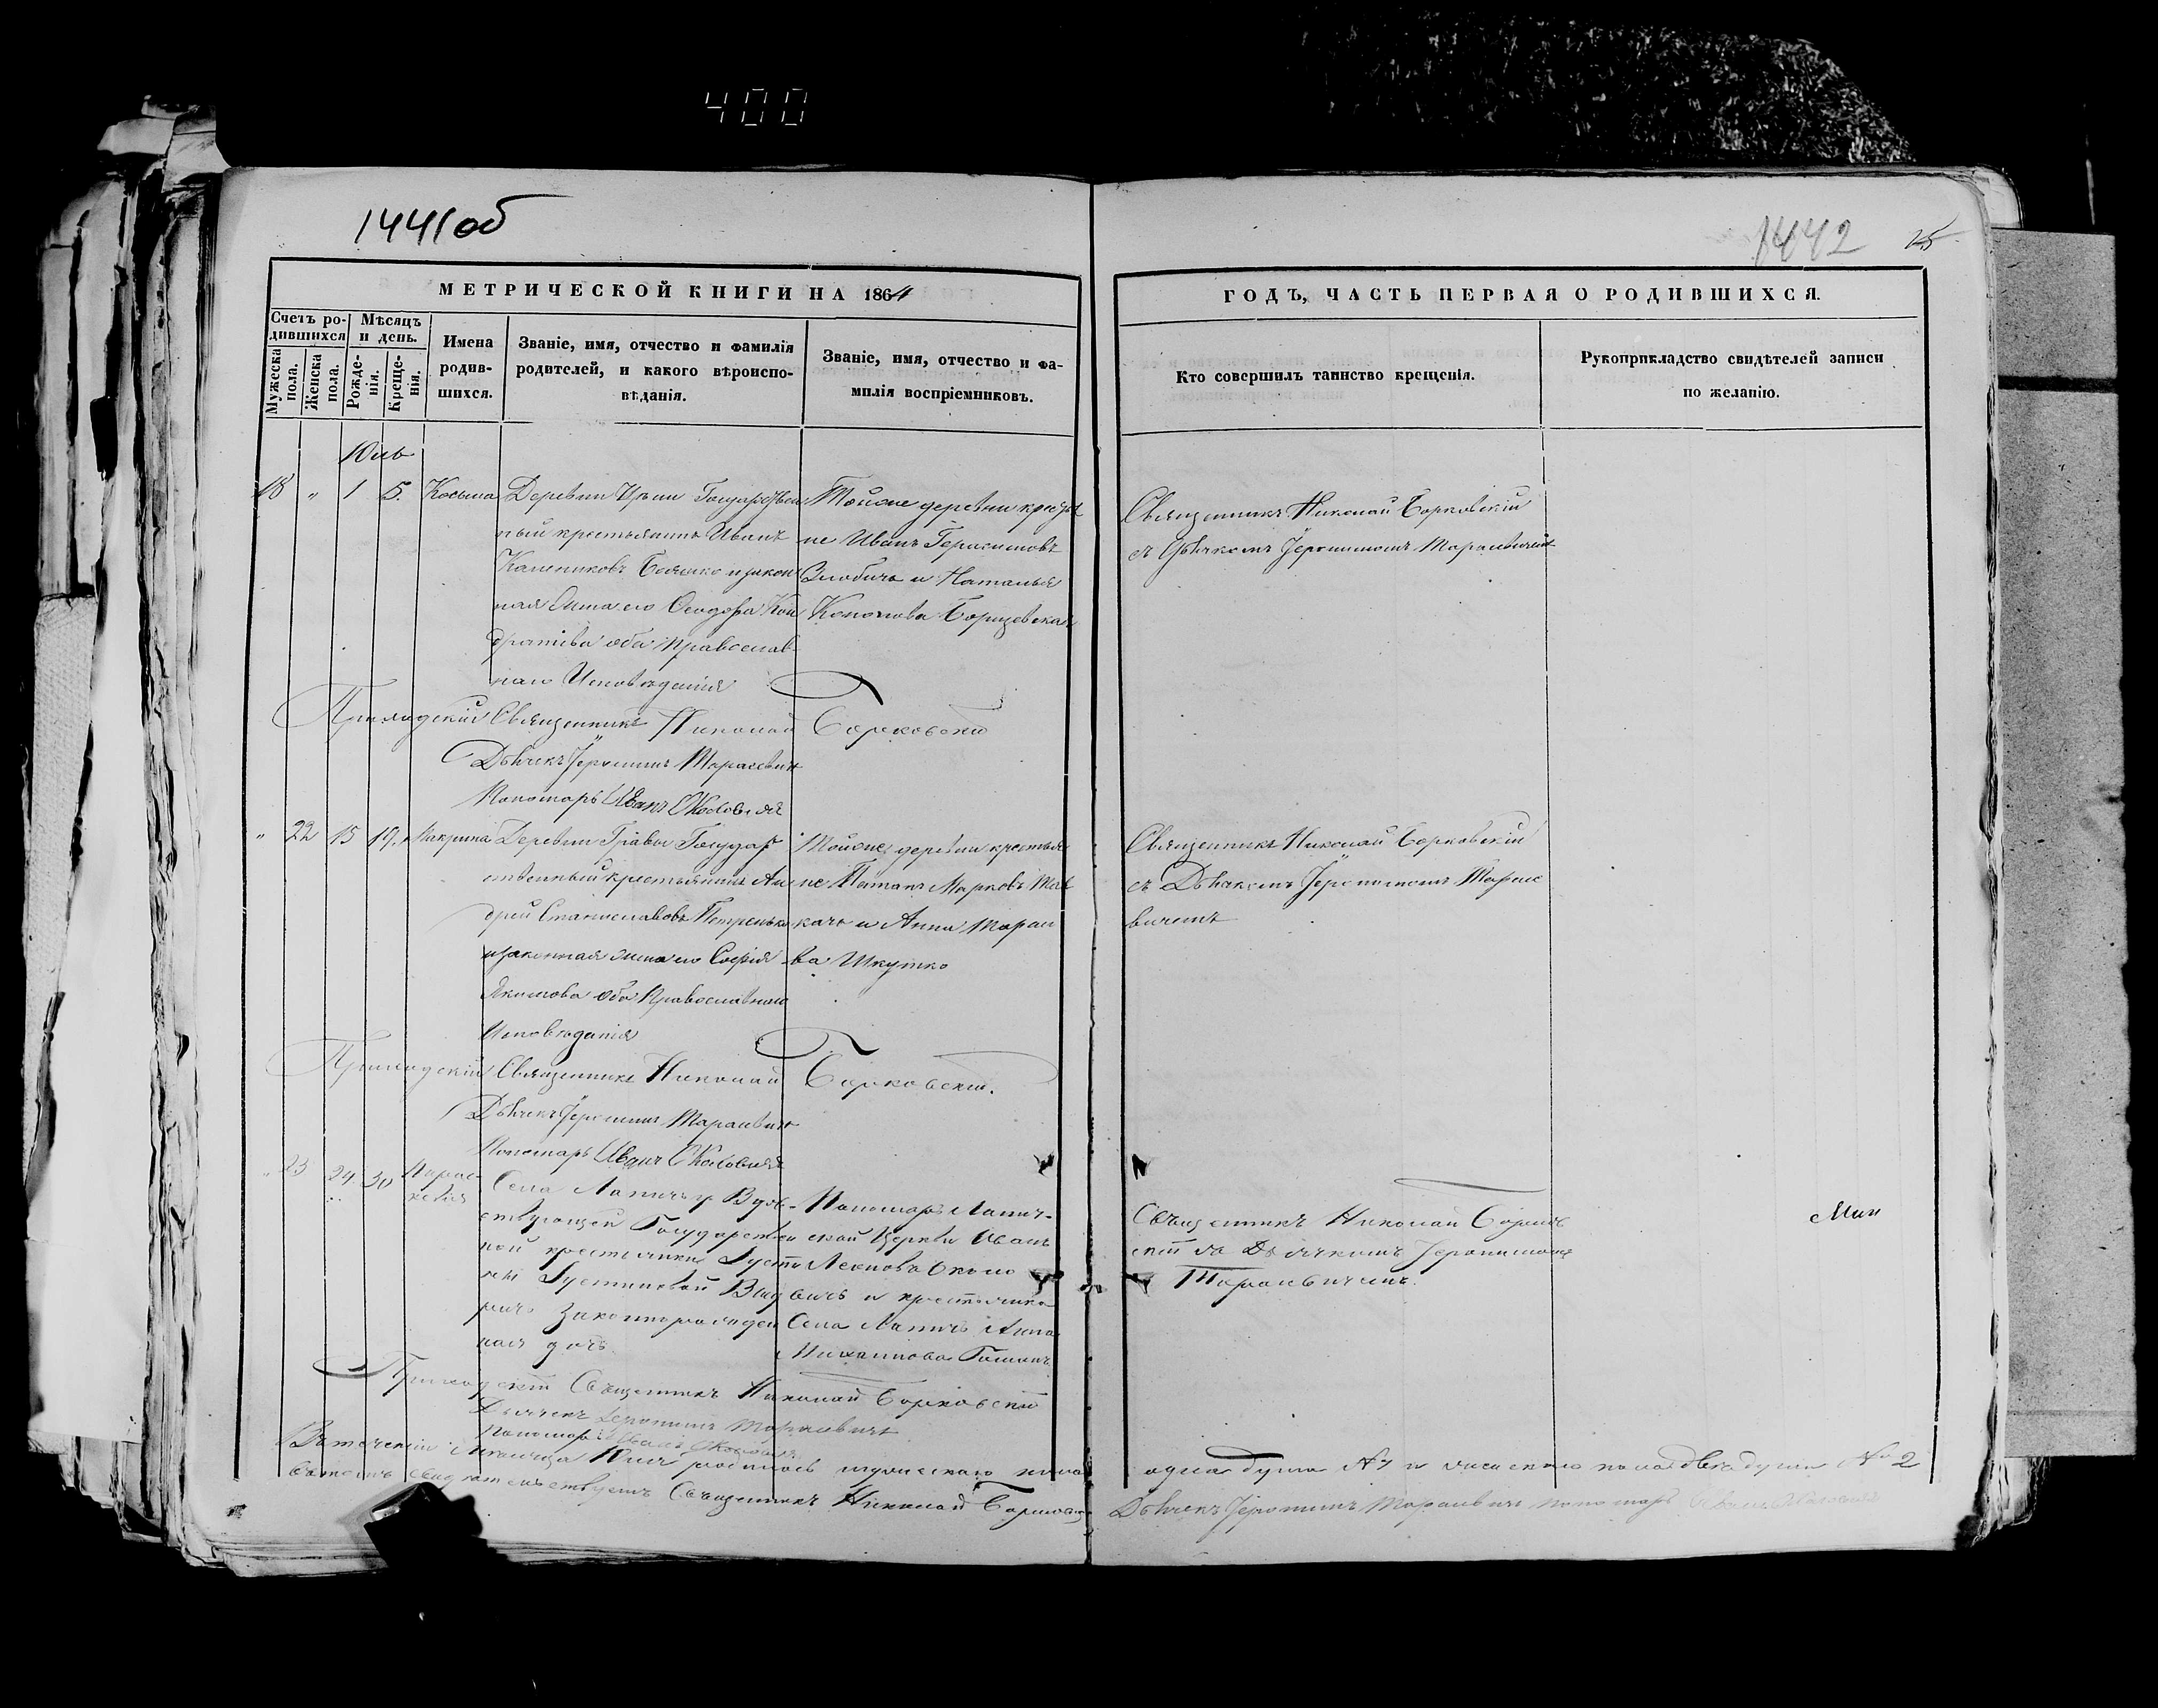 400
1441об
1442
25
МЕТРИЧЕСКОЙ КНИГИ НА 1864
ГОДЪ, ЧАСТЬ ПЕРВАЯ О РОДИВШИХСЯ.
Счетъ родившихся
Мужеска пола.
Женска пола.
Мѣсяцъ и день.
Рожденія.
Крещенія.
Имена родившихся.
Званіе, имя, отчество и фамилія
родителей, и какого вѣроиспо-
вѣданія.
Званіе, имя, отчество и фа-
милія воспріемниковъ.
Кто совершилъ таинство крещенія.
Рукоприкладство свидѣтелей записи
по желанію.
Юль
18 " 1 5. Косьма
Деревни Государствен
ный крестьянинъ Иванъ
и закон
ная жена его Феодора Кон
дратіева оба православ
наго Исповѣданія
Тойже деревни крестья
не Иванъ Герасимовъ
и Наталья
Священникъ Николай Борковскій
съ Дьячкомъ Іеронимомъ Тарасевичемъ
Приходскій Священникъ Николай Борковскій
Дьячекъ Іеронимъ Тарасевичъ
Пономарь Иванъ
" 22 15 19. Макрина
Деревни Государ
ственный крестьянинъ Ан
дрей Станиславовъ Петренько
и законная жена его Софія
Якимова оба Православнаго
Исповѣданія
Тойже деревни крестья
не Марковъ
качъ и Анна Тарасо
ва Шкутко
Священникъ Николай Борковскій
съ Дьячкомъ Іеронимомъ Тарасе
вичемъ
Приходскій Священникъ Николай Борковскій.
Дьячекъ Іеронимъ Тарасевичъ
Пономарь Иванъ
" 23 24 30 Парас-
кевія
Села Лапичъ у Вдов-
ствующей Государствен
ной крестьянки
Законнорожден
ная дочь
Пономарь Лапич-
ской Церкви Иванъ
Леоновъ Около
вичъ и крестьянка
Села Лапичъ Анна
Священникъ Николай Борков
скій съ Дьячкомъ Іеронимомъ
Тарасевичемъ.
Мин
Приходскій Священникъ Николай Борковскій
Дьячекъ Іеронимъ Тарасевичъ
Пономарь Иванъ
Въ теченіи мѣсяца Юля родилось мужескаго пола одна душа № 1 и женскаго пола двѣ души № 2
въ томъ свидѣтельствуемъ Священникъ Николай Борковскій Дьячекъ Іеронимъ Тарасевичъ пономарь Иванъ